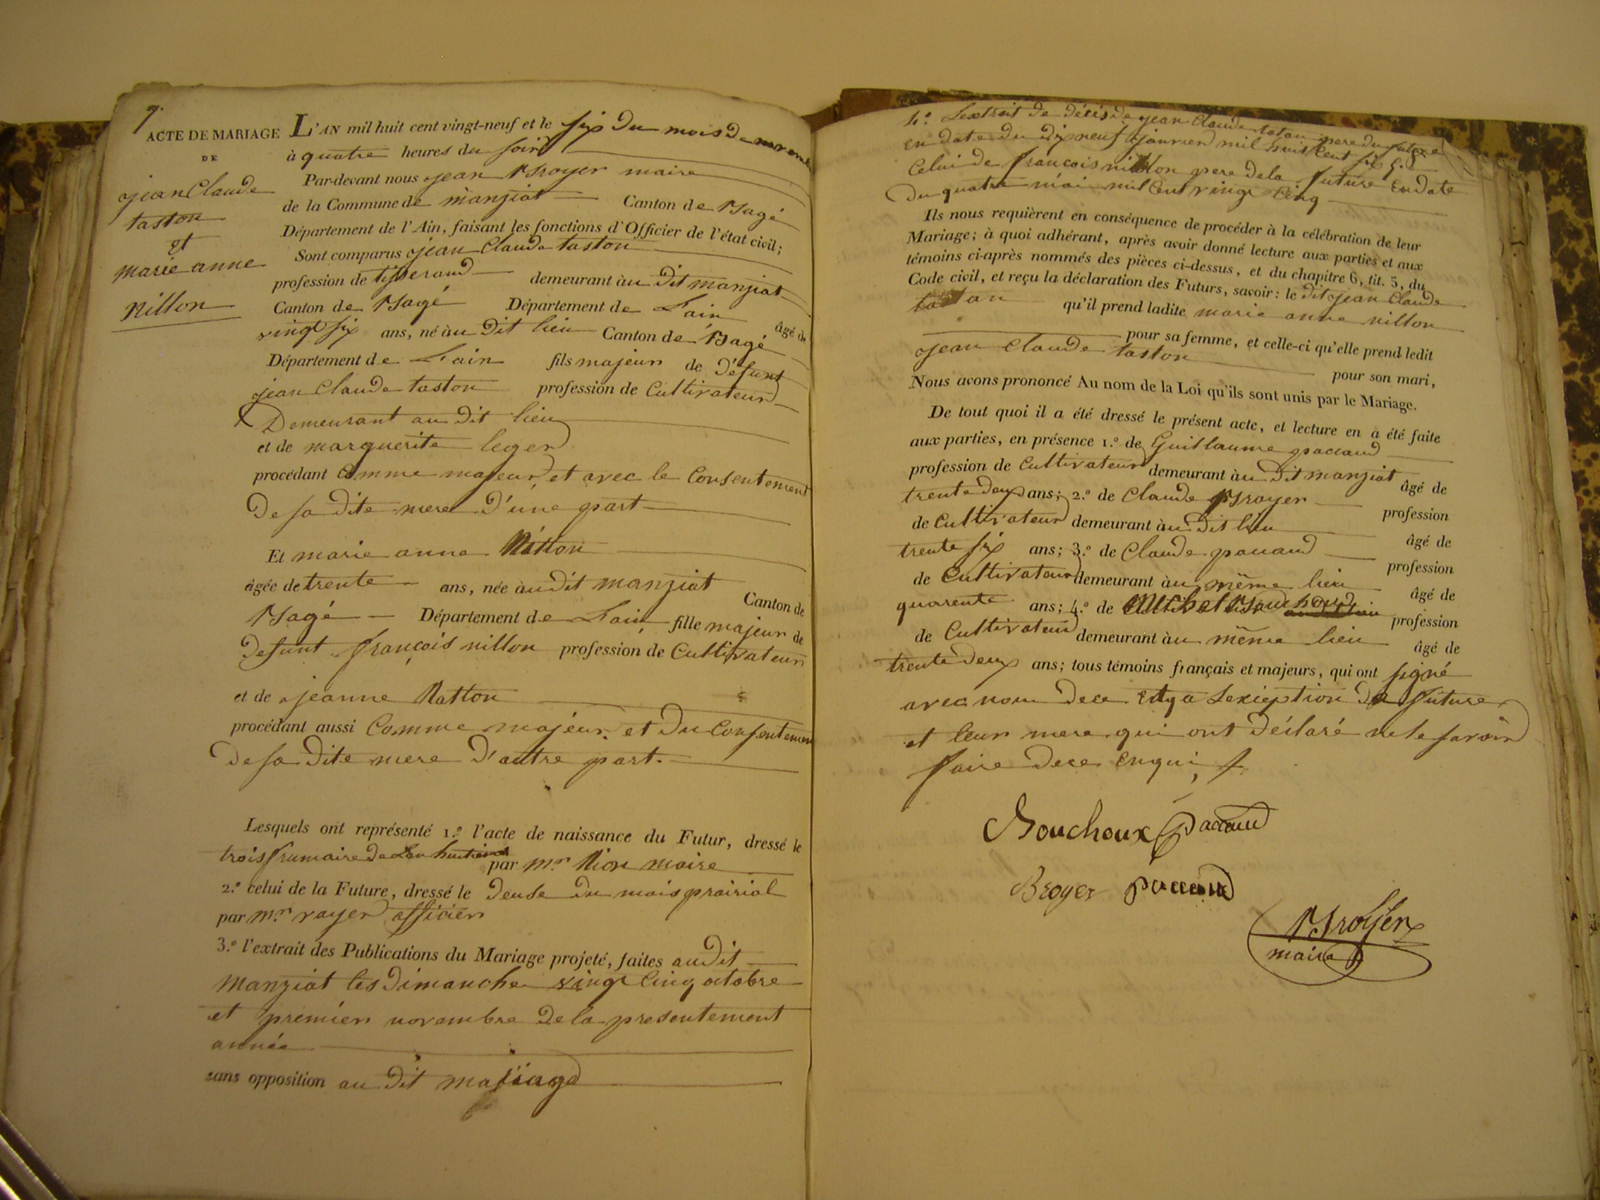 7.
ACTE DE MARIAGE
DE
jean Claude
taston
et
marie anne
nillon
L'AN mil huit cent vingt-neuf et le six du mois de novembre
à quatre heures du soir
Par-devant nous jean Broyer maire
de la Commune de manziat Canton de Bagé
Département de l'Ain, faisant les fonctions d'Officier de l'état civil;
Sont comparus jean Claude taston
profession de tisserand demeurant au Dit manziat
Canton de Bagé Département de Lain âgé de
vingt six ans, né au Dit lieu Canton de Bagé
Département de Lain fils majeur de Défunt
jean Claude taston profession de Cultivateur
Demeurant au dit lieu
et de marguerite leger
procédant Comme majeur, et avec le Consentement
De sa dite mere D'une part
Et marie anne Nillon
âgée de trente ans, née au dit manziat Canton de
Bagé Département de Lain fille majeur de
Defunt françois nillon profession de Cultivateur
et de jeanne Natton
procédant aussi Comme majeur et Du Consentement
De sa Dite mere D'autre part.
Lesquels ont représenté 1.º l'acte de naissance du Futur, dressé le
trois frumaire de Lan huitieme par mr. Nion maire
2.º celui de la Future, dressé le Deuse du mois prairial
par mr. royer officier
3.º l'extrait des Publications du Mariage projeté, faites audit
manziat les Dimanche vingt Cinq octobre
et premier novembre De la presentement
année
sans opposition au Dit mariage
4.º Lextrait de décès de jean Claude taston pere du future
en date du dix neuf janvier mil huit Cent six
Celui de françois nillon pere de la future En Date
Du quatre mai mil Cent vingt Cinq
Ils nous requièrent en conséquence de procéder à la célébration de leur
Mariage; à quoi adhérant, après avoir donné lecture aux parties et aux
témoins ci-après nommés des pièces ci-dessus, et du chapitre 6, tit. 5, du
Code civil, et reçu la déclaration des Futurs, savoir: le dit jean Claude
taston qu'il prend ladite marie anne nillon
pour sa femme, et celle-ci qu'elle prend ledit
jean Claude taston pour son mari,
Nous avons prononcé Au nom de la Loi qu'ils sont unis par le Mariage.
De tout quoi il a été dressé le présent acte, et lecture en a été faite
aux parties, en présence 1.º de Guillaume paccaud
profession de Cultivateur demeurant au Dit manziat âgé de
trente deux ans; 2.º de Claude Broyer profession
de Cultivateur demeurant au Dit lieu âgé de
trente six ans; 3.º de Claude paccaud profession
de Cultivateur demeurant au même lieu âgé de
quarente ans; 4.º de Michel Bouchoux profession
de Cultivateur demeurant au même lieu âgé de
trente deux ans; tous témoins français et majeurs, qui ont signé
avec nous Dece à Lexception Des future
et leur mere qui ont Déclaré ne le savoir
faire Dece Enqui
Bouchoux paccaud
Broyer paccaud
Broyer
maire